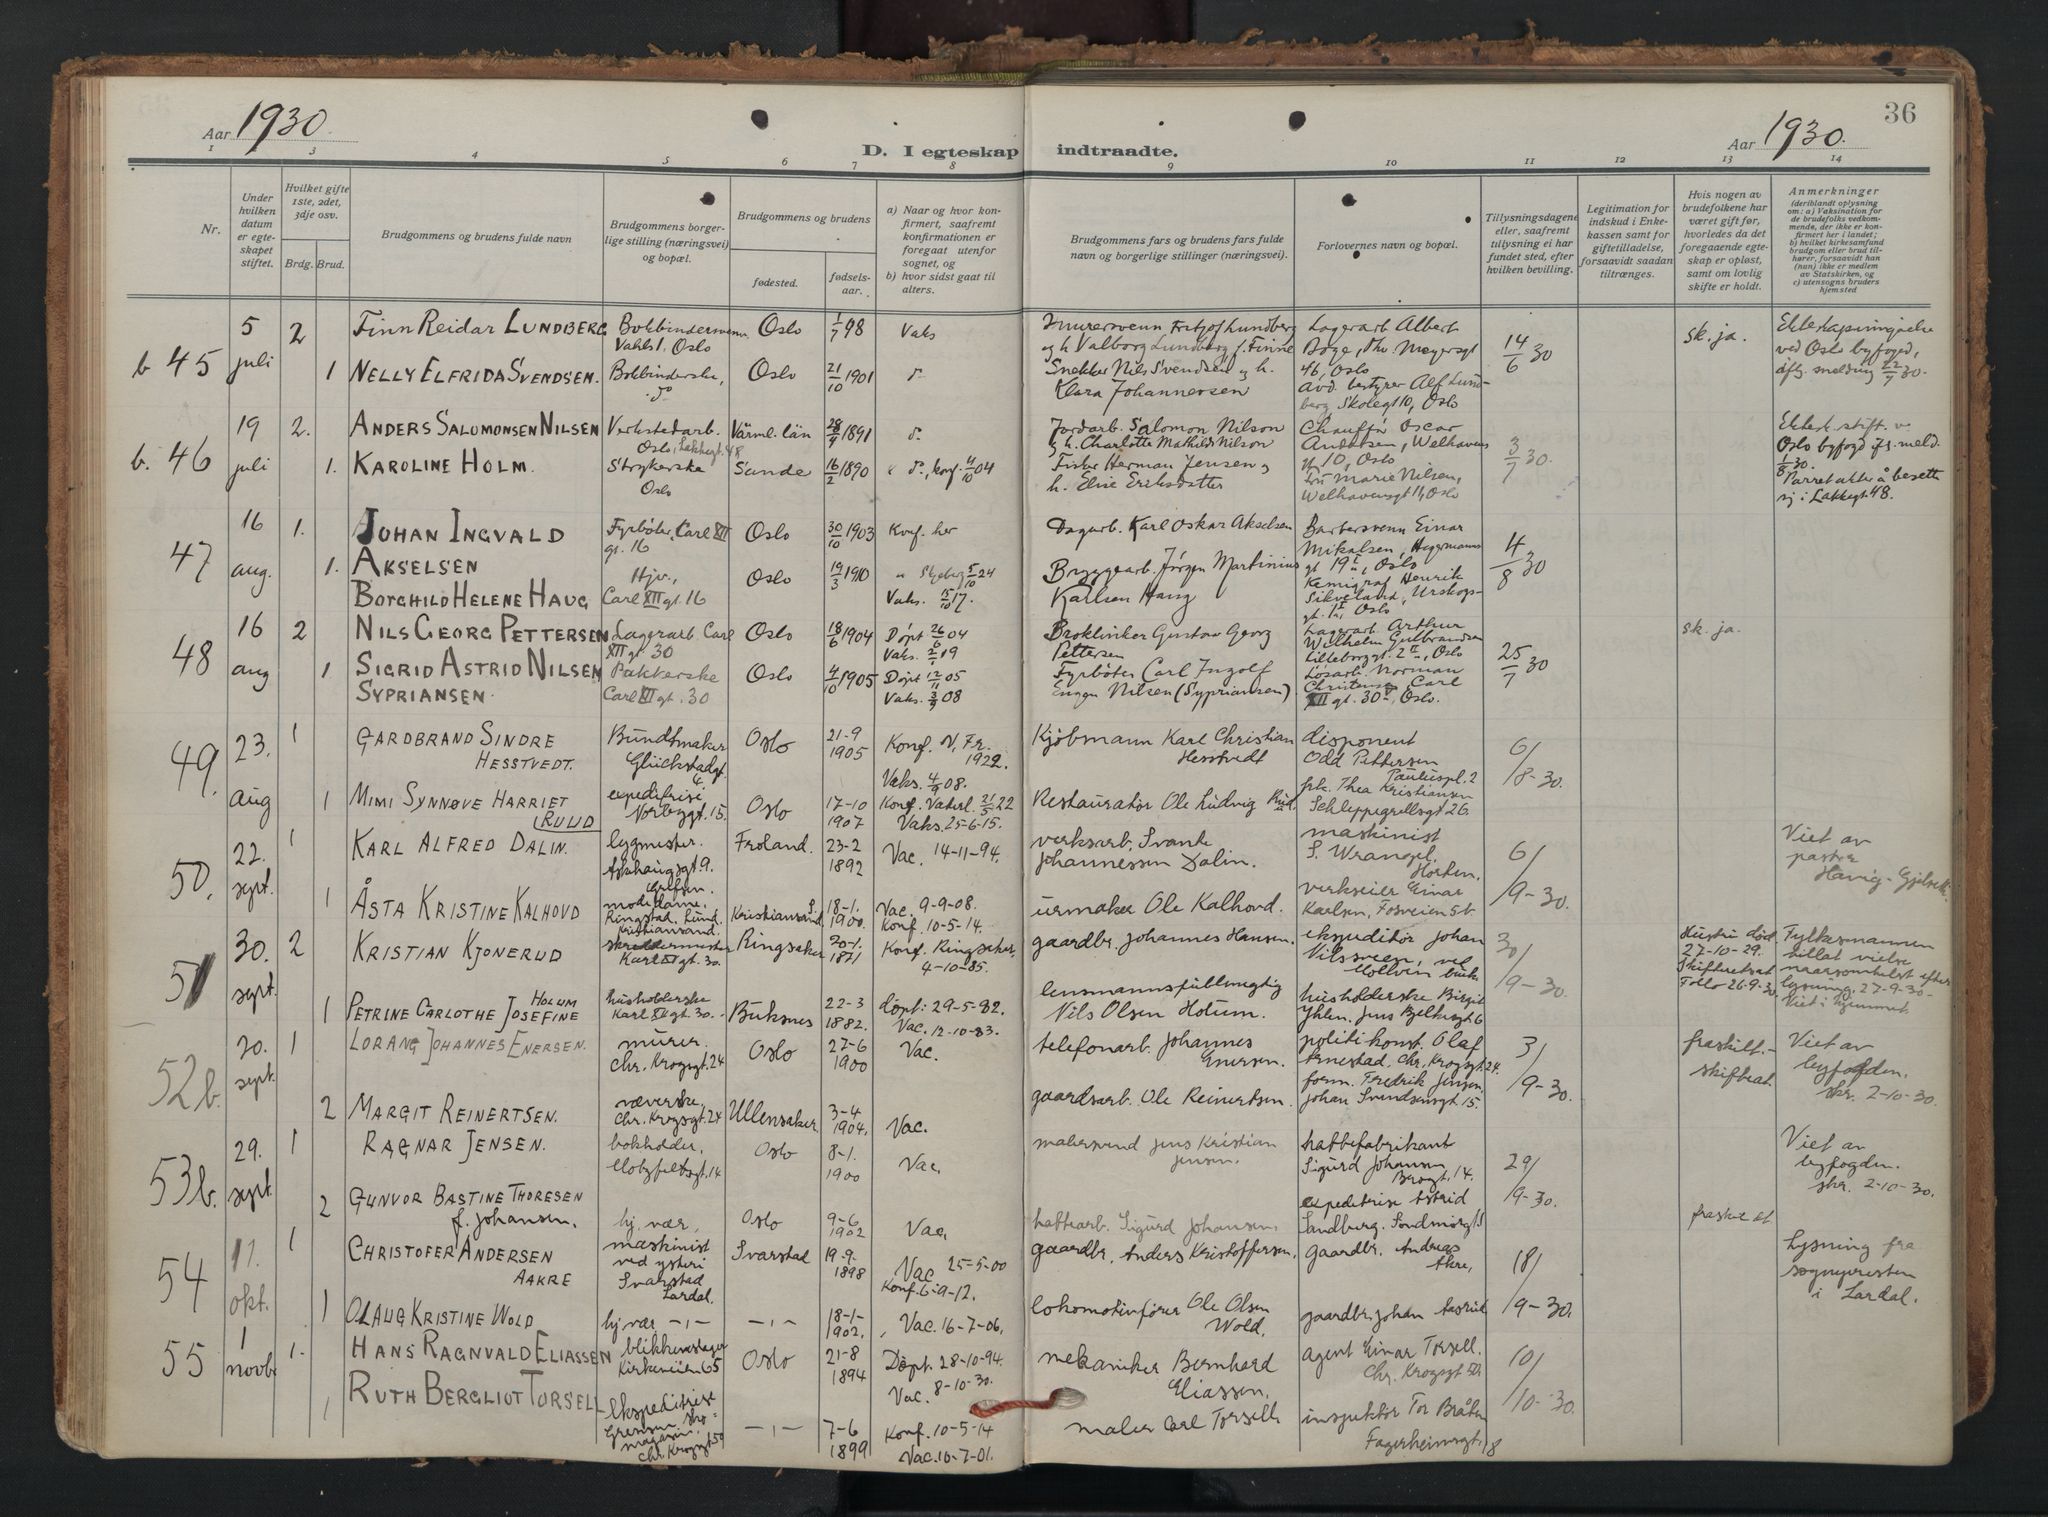 36
Aar 1930.
D. I egteskap indtraadte.
Aar 1930.
1 2 3 4 5 6 7 8 9 10 11 12 13 14
Nr.
Under hvilken datum er egteskapet stiftet.
Hvilket gifte 1ste, 2det, 3dje osv.
Brdg. Brud.
Brudgommens og brudens fulde navn
Brudgommens borgerlige stilling (næringsvei) og bopæl.
Brudgommens og brudens
fødested.
fødselsaar.
a) Naar og hvor konfirmert, saafremt konfirmationen er foregaat utenfor sognet, og
b) hvor sidst gaat til alters.
Brudgommens fars og brudens fars fulde navn og borgerlige stillinger (næringsvei).
Forlovernes navn og bopæl.
Tillysningsdagene eller, saafremt tillysning ei har fundet sted, efter hvilken bevilling.
Legitimation for indskud i Enkekassen samt for giftetilladelse, forsaavidt saadan tiltrænges.
Hvis nogen av brudefolkene har været gift før, hvorledes da det foregaaende egteskap er opløst, samt om lovlig skifte er holdt.
Anmerkninger
(deriblandt oplysning om: a) Vaksination for de brudefolks vedkommende, der ikke er konfirmert her i landet; b) hvilket kirkesamfund brudgom eller brud tilhører, forsaavidt han (hun) ikke er medlem av Statskirken, og c) utensogns bruders hjemsted
b. 45 5 juli 2 Finn Reidar Lundberg Bokbindersvenn Vahls 1. Oslo Oslo 1/7 98 Vaks
Murersvenn Fritjof Lundberg og h. Valborg Lundberg f. Finne
Lagerarb. Albert Bøge, Th. Meyersgt 46, Oslo
14/6 30 sk. ja.
ved Oslo byfoged, melding 22/7 30.
1 Nelly Elfrida Svendsen. Bokbinderske, do Oslo 21/10 1901 do
Snekker Nils Svendsen og h. Klara Johannessen
Avd. bestyrer Alf Lundberg Skolegt 10, Oslo
b. 46 19 juli 2. Anders Salomonsen Nilsen Verkstedarb. Oslo, Lakkegt. 48 Värml. län 28/4 1891 do
Jordarb. Salomon Nilson og h. Charlotte Mathilds Nilson
Chauffør Oscar Andersen, Welhavens gt 10, Oslo
3/7 30.
Ektesk. stift. v Oslo byfogd if. meld. 1/8 30.
Parret akter å besette sig i Lakkegt 48.
1. Karoline Holm. Strykerske Oslo Sande 16/2 1890 do, konf. 4/10 04
Fisker Herman Jensen og h. Elise Eriksdatter
Fru Marie Nilsen, Welhavensgt 11, Oslo
47 16 aug. 1. Johan Ingvald Akselsen Fyrbøter, Carl XII gt. 16 Oslo 30/10 1903 Konf. her
Dagarb. Karl Oskar Akselsen
Barbersvenn Einar Mikalsen, Hegermanns gt 19 II, Oslo
4/8 30
1. Borghild Helene Haug Hjv., Carl XII gt. 16 Oslo 19/3 1910 " Skjeberg 5/10 24 Vaks. 15/10 17.
Bryggearb. Jørgen Martinius Karlsen Haug
Kemigraf Henrik Sikveland, Urskogsgt. 1 II, Oslo
48 16 aug 2 Nils Georg Pettersen Lagerarb. Carl XII gt. 30 Oslo 18/6 1904 Døpt 26/6 04 Vaks. 2/1 19
Broklinker Gustav Georg Pettersen
Lagerarb. Arthur Wilhelm Gulbrandsen Lilleborggt. 2 II, Oslo
25/7 30 sk. ja.
1 Sigrid Astrid Nilsen Sypriansen. Pakkerske Carl XII gt. 30 Oslo 4/10 1905 Døpt 12/11 05 Vaks. 3/9 08
Fyrbøter Carl Ingolf Eugen Nilsen (Sypriansen)
Løsarb. Norman Christensen, Carl XII gt. 30 V, Oslo.
49. 23. aug 1 Gardbrand Sindre Hesstvedt. Bundtmaker Glückstadgt. 4. Oslo 21-9 1905 Konf. V. Fr. 1922. Vaks. 4/9 08.
Kjöbmann Karl Christian Hesstvedt
disponent Odd Pettersen Pauluspl. 2
6/8-30.
1 Mimi Synnøve Harriet Ruud expeditrise Norbygt. 15. Oslo 17-10 1907 Konf. Vaterl. 21/5 22 Vaks. 25-6-15.
Restauratør Ole Ludvig Ruud.
frk. Thea Kristiansen Schleppegrellsgt 26.
50. 22. sept. 1 Karl Alfred Dalin. bygmester. Askhaugsgt 9. Froland. 23-2 1892 Vac. 14-11-94.
verksarb. Svante Johannessen Dalin.
maskinist S. Wrangel. Horten.
6/9-30.
Viet av pastor
1 Åsta Kristine Kalhovd modedame, Ringstad, Lund. Kristiansand. Kristiansand S. 18-1. 1900. Vac. 9-9-08. Konf. 10-5-14.
urmaker Ole Kalhovd.
verkseier Einar Karlsen, Fosveien 5b.
51 30. sept. 2 Kristian Kjonerud skreddermester Karl XII gt. 30. Ringsaker 20-1. 1871 Konf. Ringsaker, 4-10-85.
gaardbr. Johannes Hansen.
ekspeditør Johan Nilsveen, ved
30/9-30.
Hustru død 27-10-29. Skifteretsat Follo 26-9-30.
Fylkesmannen tillat vielse naarsomhelst efter lysning, 27-9-30. Viet i hjemmet
1 Petrine Carlothe Josefine Holum husholderske Karl XII gt. 30. Buksnes 22-3 1882. døpt: 29-5-82. Vac. 12-10-83.
lensmannsfullmegtig Nils Olsen Holum.
husholderske Birgit Ihlen. Jens Bjelkesgt 6
52 b. 20. sept. 1 Lorang Johannes Enersen. murer. Chr. Krogsgt. 24 Oslo 27-6 1900 Vac.
telefonarb. Johannes Enersen.
politikonst. Olaf Arnestad, Chr. Krogsgt. 24.
3/9-30.
fraskilt.- skifteat.
Viet av byfogden. skr. 2-10-30.
2 Margit Reinertsen. væverske, Chr. Krogsgt. 24 Ullensaker. 3-4 1904. Vac.
gaardsarb. Ole Reinertsen.
form. Fredrik Jensen, Johan Svendsensgt 15.
53 b. 29. sept. 1 Ragnar Jensen. bokholder. Oslo 8-1. 1900 Vac.
malersvend Jens Kristian Jensen.
hattefabrikant Sigurd Johansen Berggt. 14.
29/9-30.
Viet av byfogden. skr. 2-10-30.
2 Gunvor Bastine Thoresen f. Johansen. hj. vær, Oslo 9-6 1902 Vac.
hattearb. Sigurd Johansen
expeditrise Astrid Sandberg. Søndmørgt 1
54 11. okt. 1 Christofer Andersen Aakre maskinist ved ysteri Svarstad Lardal. Svarstad 19-9. 1898 Vac 25-5-00 Konf. 6-9-12.
gaardbr. Anders Kristoffersen,
gaardbr. Andreas Akre,
18/9-30.
Lysning fra sognepresten i Lardal.
1 Olaug Kristine Wold hj. vær -,- -,- 18-1- 1902. Vac. 16-7-06.
lokomotivfører Ole Olsen Wold.
gaardbr. Johan Aasrud
55 1 novbr 1. Hans Ragnvald Eliassen blikkenslager Kirkeveien 65 Oslo 21-8 1894 Døpt. 28-10-94. Vac. 8-10-30.
mekaniker Bernhard Eliassen.
agent Einar Torsell. Chr. Krogsgt 50
10/10-30.
1 Ruth Bergliot Torsell ekspeditrise Grensen skomagasin. Chr. Krogsgt 50 -,- 7-6 1899 Konf. 10-5-14 Vac. 10-7-01.
maler Carl Torsell
inspektør Tor Bråten Fagerheimsgt. 18